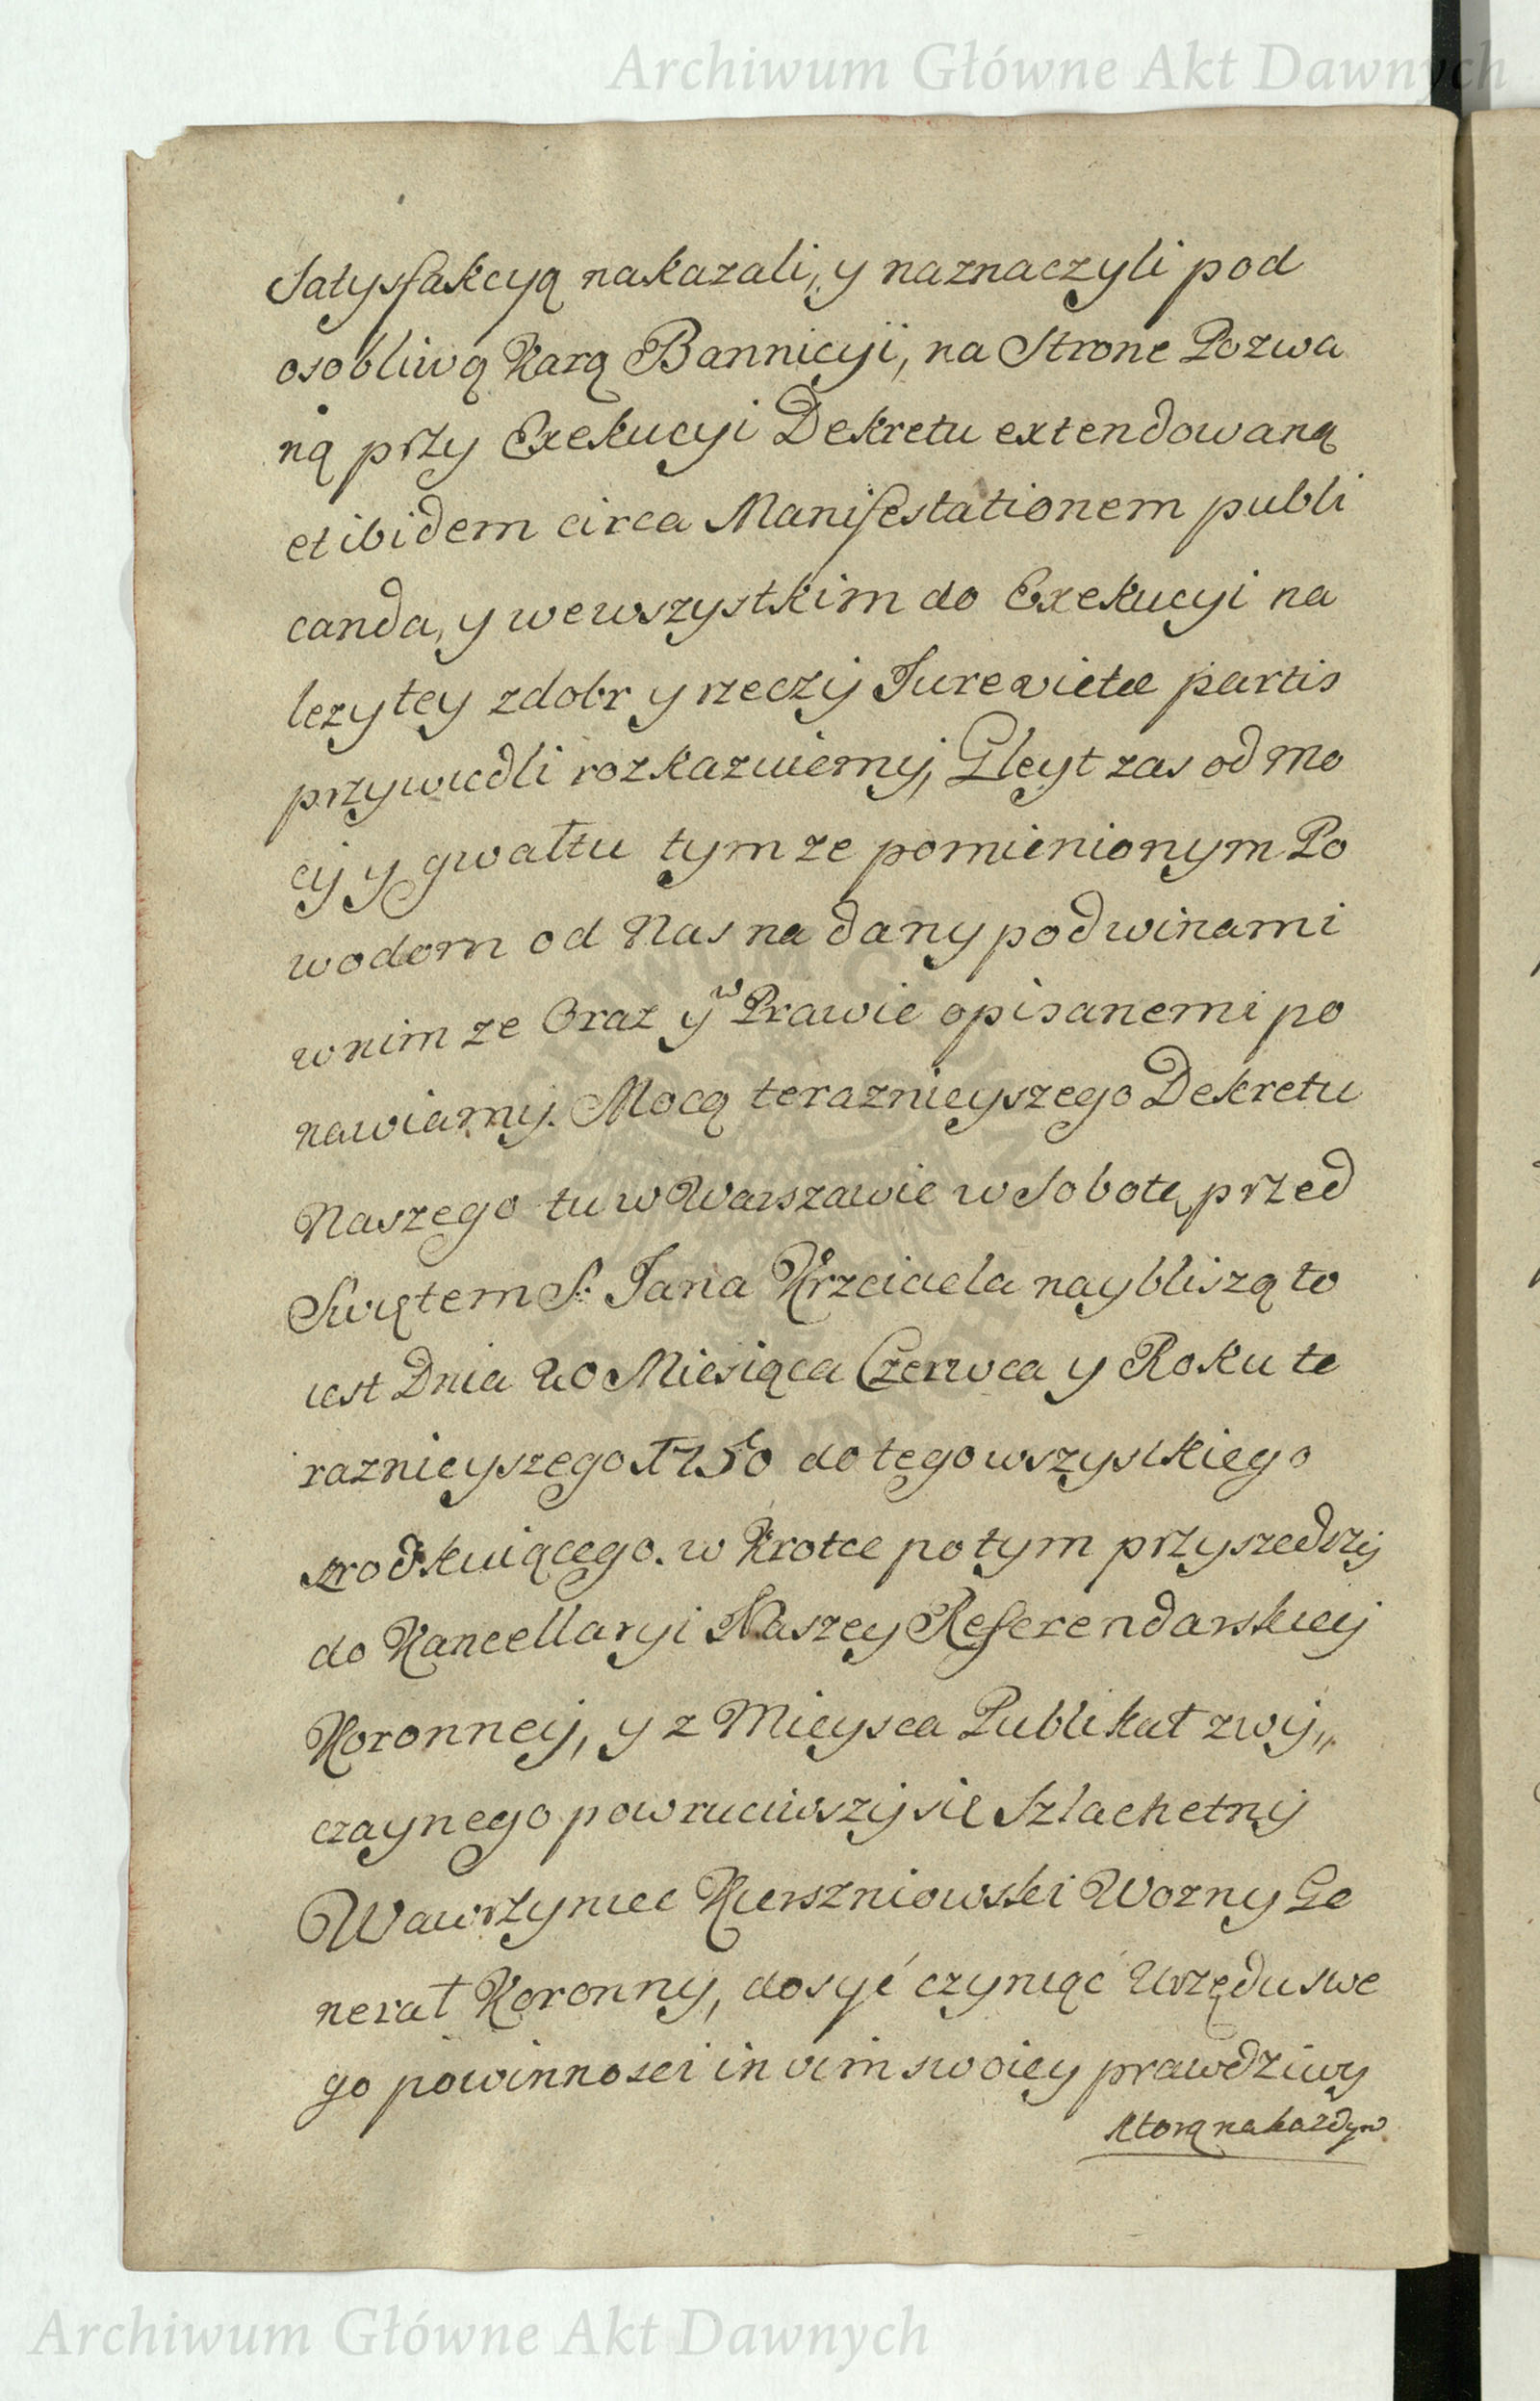 Archiwum Główne Akt Dawnych
Satysfakcyą nakazali, y naznaczyli pod
osobliwą Karą Bannicyi, na Strone Pozwa
ną przy Exekucyi Dekretu extendowaną
et ibidem circa Manifestationem publi
canda, y we wszystkim do Exekucyi na
lezytey z dobr y rzeczy Jure victæ partis
przywiedli rozkazuiemy, Gleyt zas od mo
cy y gwałtu tym ze pomienionym Po
wodom od Nas nadany pod winami
w nim ze Oraz y w Prawie opisanemi po
nawiamy. Mocą teraznieyszego Dekretu
Naszego tu w Warszawie w Sobotę przed
Swiętem S. Jana Krzciciela naybliszą to
iest Dnia 20 Miesiąca Czerwca y Roku te
raznieyszego 1750 do tego wszystkiego
srodkuiącego. w Krotce potym przyszedszy
do Kancellaryi Naszey Referendarskiey
Koronney, y z Mieysca Publikat zwy„
czaynego powruciwszy się Szlachetny
Wawrzyniec Kierszniowski Wozny Ge
nerał Koronny, dosyć czyniąc Urzędu swe
go powinnosci in vim swoiey prawdziwy
ktorą na kazdym
Archiwum Główne Akt Dawnych